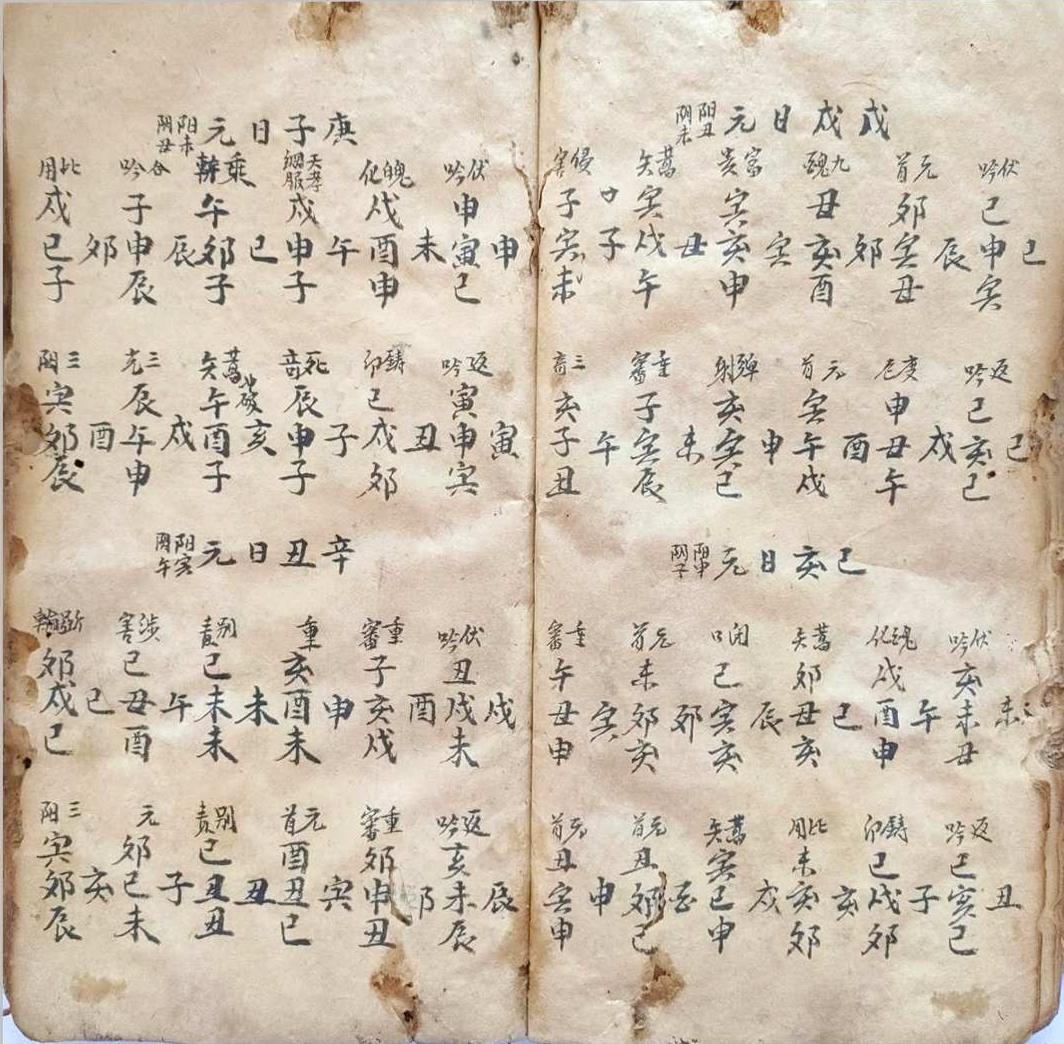 戊戌日元 阳丑阴未
巳
伏吟 巳申寅
辰
元首 卯寅丑
卯
九醜 丑亥酉
寅
富贵 寅亥申
丑
蒿矢 寅戌午
子
侵害 子寅未
巳
返吟 巳亥巳
戌
度厄 申丑午
酉
元首 寅午戌
申
弹射 亥寅巳
未
重審 子寅辰
午
三奇 亥子丑
己亥日元 阳申阴子
未
伏吟 亥未丑
午
魄化 戌酉申
巳
蒿矢 卯丑亥
辰
闭口 巳寅亥
卯
元首 未卯亥
寅
重審 午丑申
丑
返吟 巳亥巳
子
鑄印 巳戌卯
亥
比用 未亥卯
戌
蒿矢 寅巳申
酉
元首 丑卯巳
申
元首 丑寅申
庚子日元 阳未阴丑
申
伏吟 申寅巳
未
魄化 戌酉申
午
天孝 網服 戌申子
巳
乘軒 午卯子
辰
合吟 子申辰
卯
比用 戌巳子
寅
返吟 寅申寅
丑
鑄印 巳戌卯
子
死奇 辰申子
亥
蒿矢 破 午酉子
戌
三光 辰午申
酉
三阴 寅卯辰
辛丑日元 阳寅阴午
戌
伏吟 丑戌未
酉
重審 子亥戌
申
重 亥酉未
未
别責 巳未未
午
涉害 巳丑酉
巳
斫輪 卯戌巳
辰
返吟 亥未辰
卯
重審 卯申丑
寅
元首 酉丑巳
丑
别責 巳丑丑
子
元 卯巳未
亥
三阴 寅卯辰